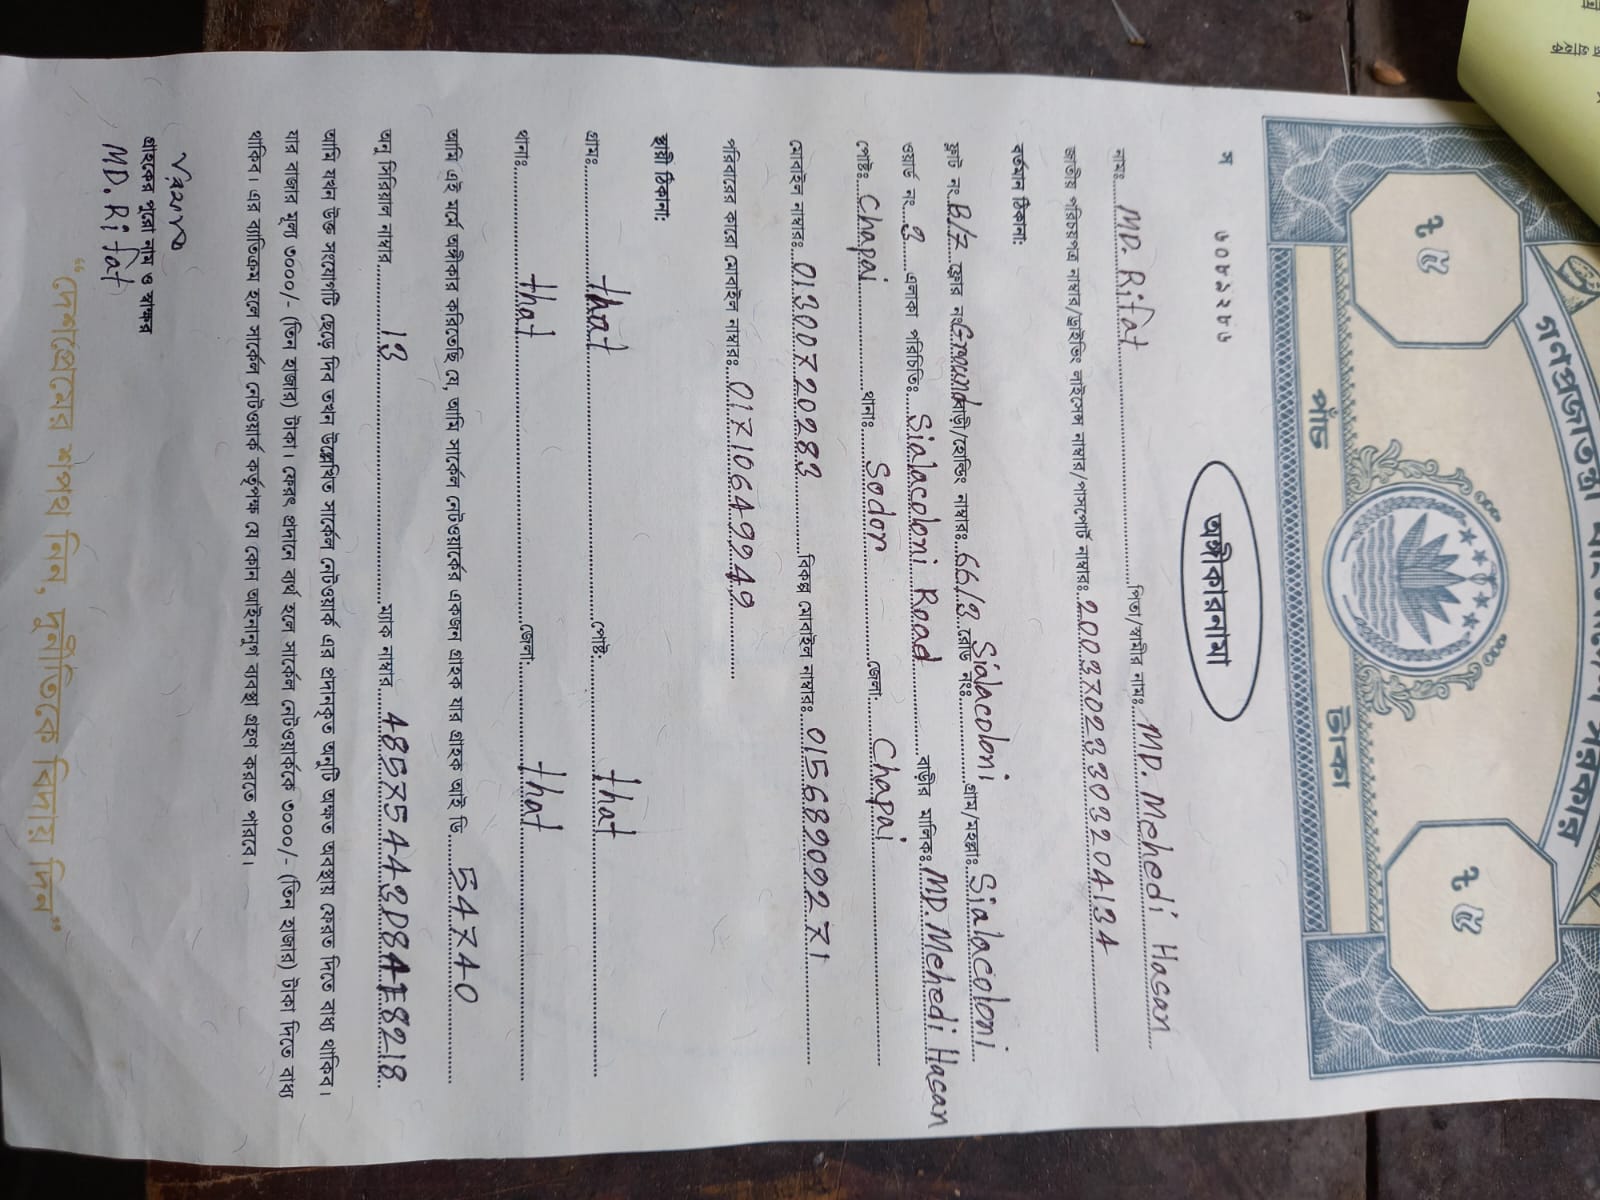 গণপ্রজাতন্ত্রী বাংলাদেশ সরকার
৳ ৫
৳ ৫
পাঁচ টাকা
স ৬০৮৯২৮৬
অঙ্গীকারনামা
নামঃ MD. Rifat পিতা/স্বামীর নামঃ MD. Mehedi Hasan
জাতীয় পরিচয়পত্র নাম্বার/ড্রাইভিং লাইসেন্স নাম্বার/পাসপোর্ট নাম্বারঃ 20037023303204134
বর্তমান ঠিকানা:
ফ্লাট নং B/7 ফ্লোর নংঃ Ground বাড়ী/হোল্ডিং নাম্বারঃ 66/3 রোড নংঃ Sialacoloni গ্রাম/মহল্লাঃ Sialacoloni
ওয়ার্ড নং 3 এলাকা পরিচিতিঃ Sialacoloni Road বাড়ীর মালিকঃ MD. Mehedi Hasan
পোষ্টঃ Chapai থানাঃ Sodor জেলা: Chapai
মোবাইল নাম্বারঃ 01300720283 বিকল্প মোবাইল নাম্বারঃ 01568909271
পরিবারের কারো মোবাইল নাম্বারঃ 01710649249
স্থায়ী ঠিকানা:
গ্রামঃ that পোষ্ট: that
থানাঃ that জেলা: that
আমি এই মর্মে অঙ্গীকার করিতেছি যে, আমি সার্কেল নেটওয়ার্কের একজন গ্রাহক যার গ্রাহক আই ডি 54740
অনু সিরিয়াল নাম্বার 13 ম্যাক নাম্বার 48575443D84E8218
আমি যখন উক্ত সংযোগটি ছেড়ে দিব তখন উল্লেখিত সার্কেল নেটওয়ার্ক এর প্রদানকৃত অনুটি অক্ষত অবস্থায় ফেরত দিতে বাধ্য থাকিব।
যার বাজার মূল্য ৩০০০/- (তিন হাজার) টাকা। ফেরৎ প্রদানে ব্যর্থ হলে সার্কেল নেটওয়ার্ককে ৩০০০/- (তিন হাজার) টাকা দিতে বাধ্য
থাকিব। এর ব্যতিক্রম হলে সার্কেল নেটওয়ার্ক কর্তৃপক্ষ যে কোন আইনানুগ ব্যবস্থা গ্রহণ করতে পারবে।
গ্রাহকের পুরো নাম ও স্বাক্ষর
MD. Rifat
“দেশপ্রেমের শপথ নিন, দুর্নীতিকে বিদায় দিন”